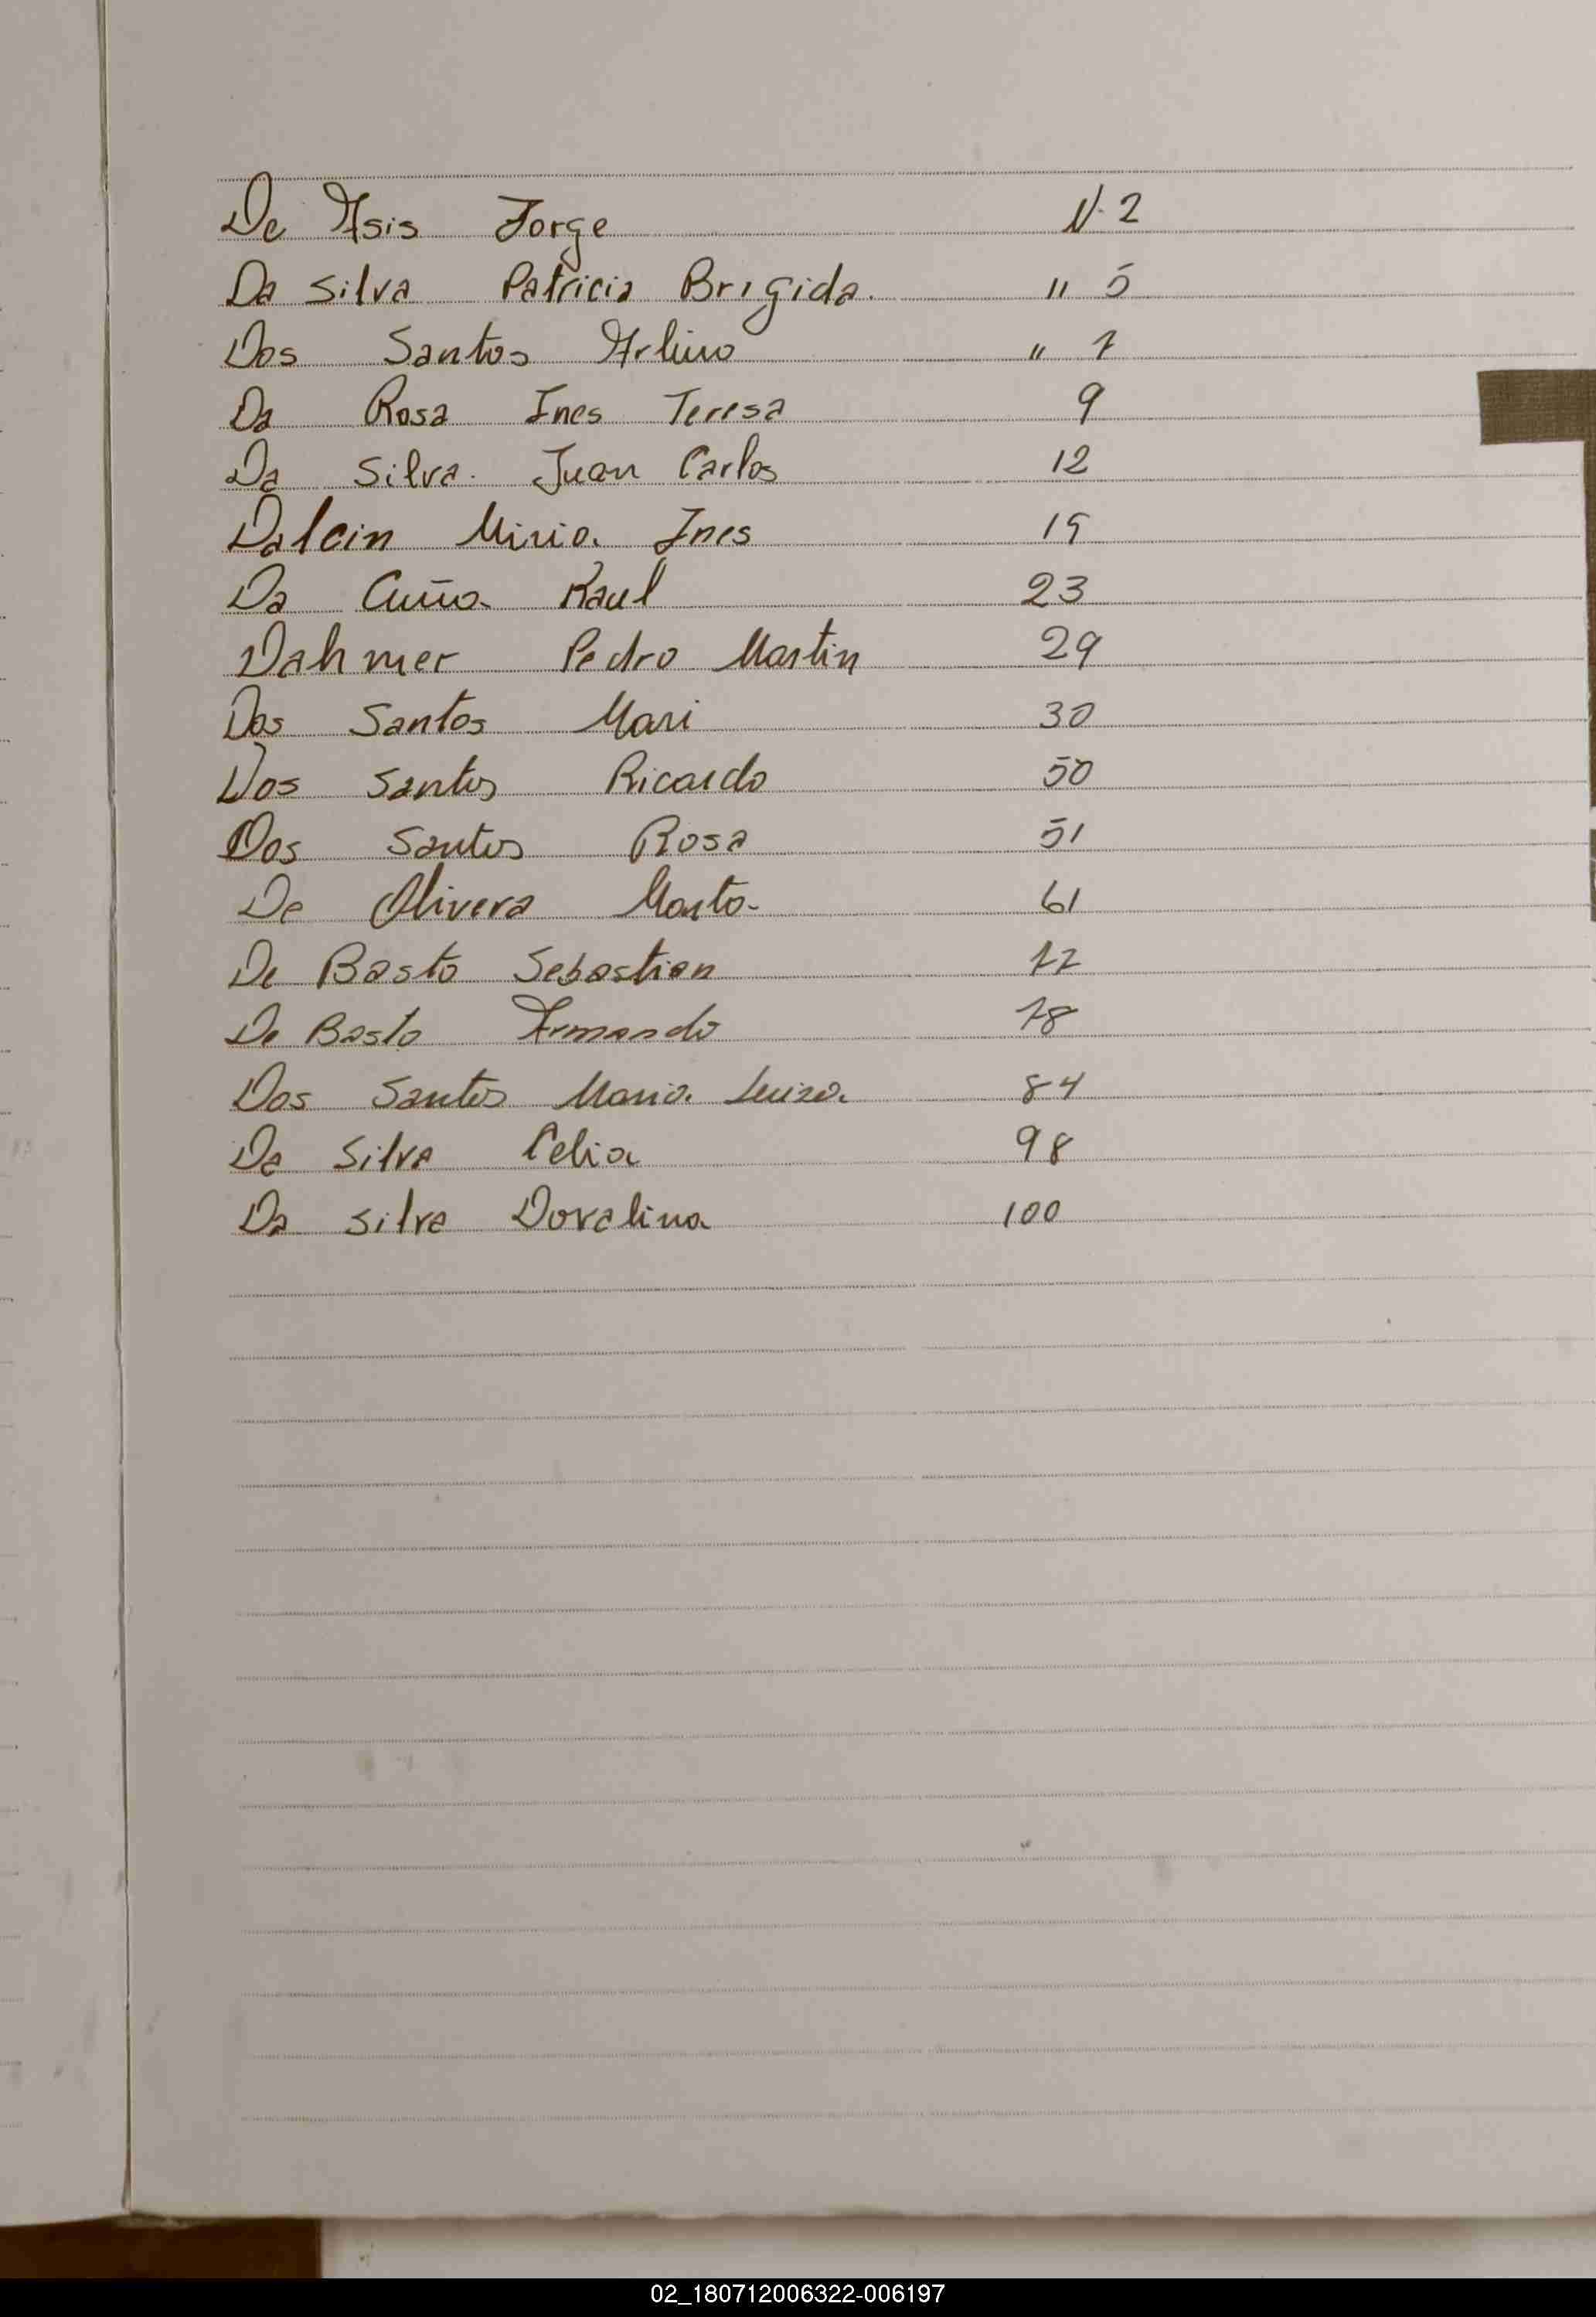 De Asis Jorge N. 2
Da Silva Patricia Brigida. " 5
Dos Santos Arlino " 7
Da Rosa Ines Teresa 9
Da Silva. Juan Carlos 12
Dalcin Miria. Ines 19
Da Cuña Raul 23
Dahmer Pedro Martin 29
Dos Santos Mari 30
Dos Santos Ricardo 50
Dos Santos Rosa 51
De Olivera Marta 61
De Basto Sebastian 77
De Basto Armando 78
Dos Santos Maria Luisa 84
Da Silva Celia 98
Da Silva Dovalina 100
02_180712006322-006197